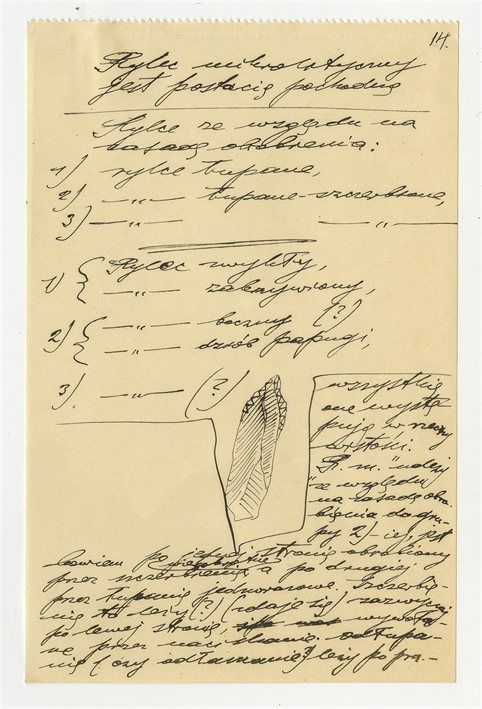 14.
Rylec mikrolityczny
jest postacią pochodną
Rylce ze względu na
zasadę obrobienia:
1) rylce łupane,
2) —„— łupane-szczerbione,
3) —„— —„—
1) { Rylec zwykły,
—„— zakrzywiony,
2) { —„— boczny (?)
—„— dziób papugi,
3) —„— (?)
wszystkie
one wystę
pują w rzeczy
wistości.
R. m. należy
ze względu
na zasadę obro-
bienia do gru-
py 2)-ej, jest
bowiem po jednej stronie obrobiony
przez szczerbienie, a po drugiej
przez łupanie jednorazowe. Szczerbie-
nie to leży (?) (zdaje się) zazwyczaj
po lewej stronie, wywoła-
ne przez naciskanie. odłupa-
nie (czy odłamanie?) leży po pra-